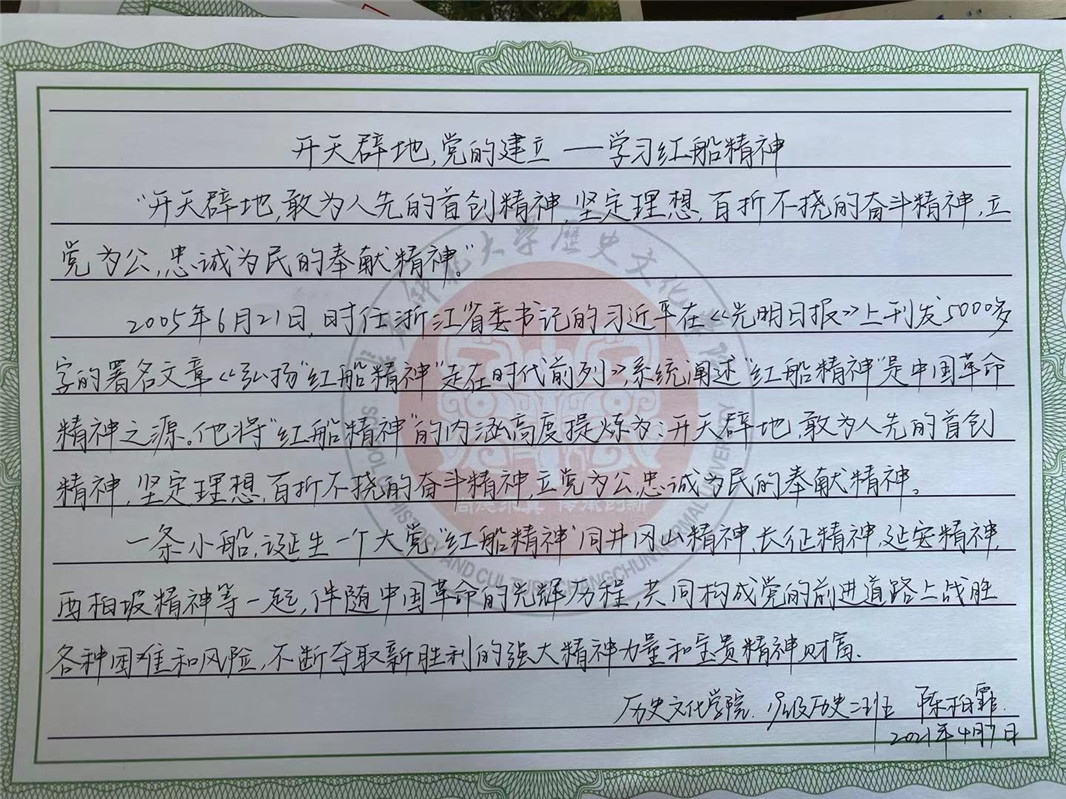 开天辟地,党的建立 — 学习红船精神
“开天辟地,敢为人先的首创精神,坚定理想,百折不挠的奋斗精神,立
党为公,忠诚为民的奉献精神。”
2005年6月21日,时任浙江省委书记的习近平在《光明日报》上刊发5000多
字的署名文章《弘扬“红船精神”走在时代前列》,系统阐述“红船精神”是中国革命
精神之源。他将“红船精神”的内涵高度提炼为:开天辟地,敢为人先的首创
精神,坚定理想,百折不挠的奋斗精神,立党为公,忠诚为民的奉献精神。
一条小船,诞生一个大党,“红船精神”同井冈山精神、长征精神、延安精神、
西柏坡精神等一起,伴随中国革命的光辉历程,共同构成党的前进道路上战胜
各种困难和风险,不断夺取新胜利的强大精神力量和宝贵精神财富.
历史文化学院 19级历史二班 陈柏霏
2021年4月7日
大学歷史文化
SCHOOL HISTORY AND CULTURE CHANGCHUN NORMAL UNIVERSITY